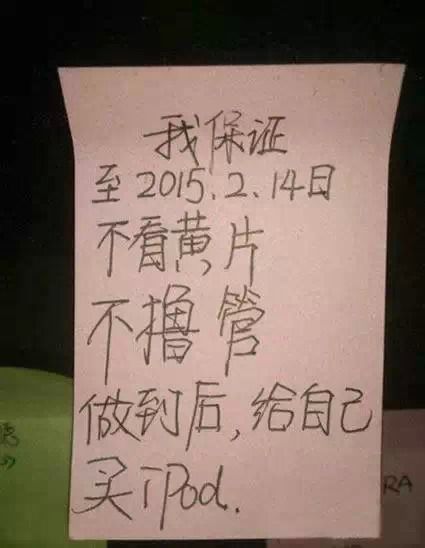 我保证
至2015.2.14日
不看黄片
不撸管
做到后,给自己
买iPod.
RA